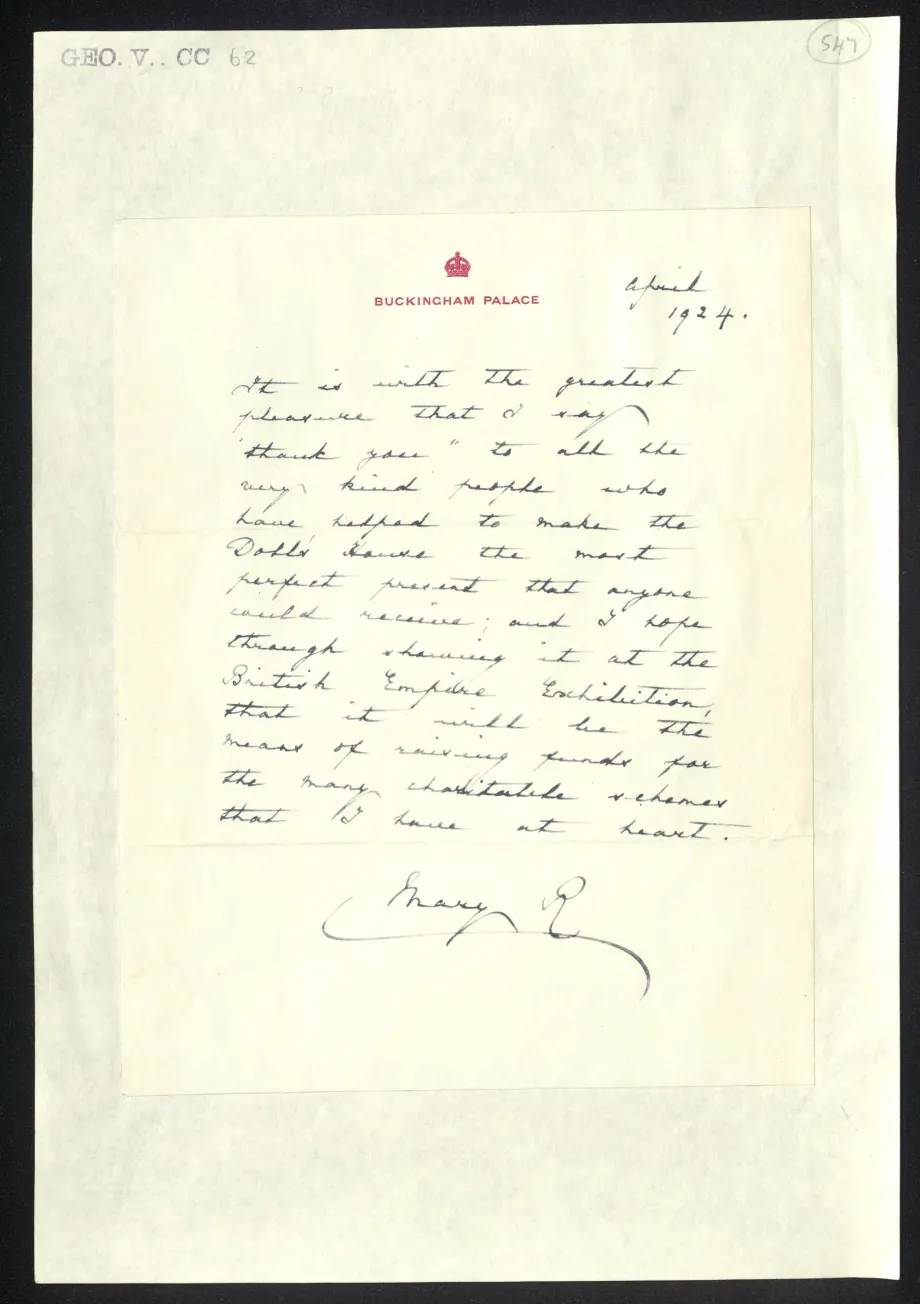 GEO. V.. CC 62
547
BUCKINGHAM PALACE
April
1924.
It is with the greatest
pleasure that I say
"thank you" to all the
very kind people who
have helped to make the
Doll's House the most
perfect present that anyone
could receive; and I hope
through showing it at the
British Empire Exhibition,
that it will be the
means of raising funds for
the many charitable schemes
that I have at heart.
Mary R